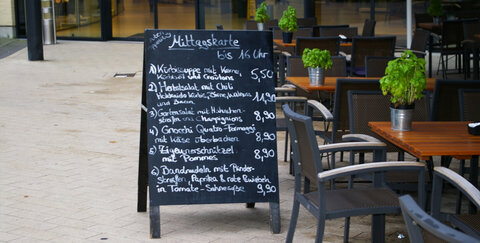 Mittagskarte
bis 16 Uhr
1) Kürbissuppe mit Kerne,
Kürbisöl und Croutons 5,50
2) Herbstsalat mit Chili
Hokkaido Kürbis, Birne, Walnuss
und Bacon 11,90
3) Gartensalat mit Hähnchen-
streifen und Champignons 8,90
4) Gnocchi Quattro-Formaggi
mit Käse überbacken 8,90
5) Zigeunerschnitzel
mit Pommes 8,90
6) Bandnudeln mit Rinder-
streifen, Paprika & rote Zwiebeln
in Tomate-Sahnesoße 9,90